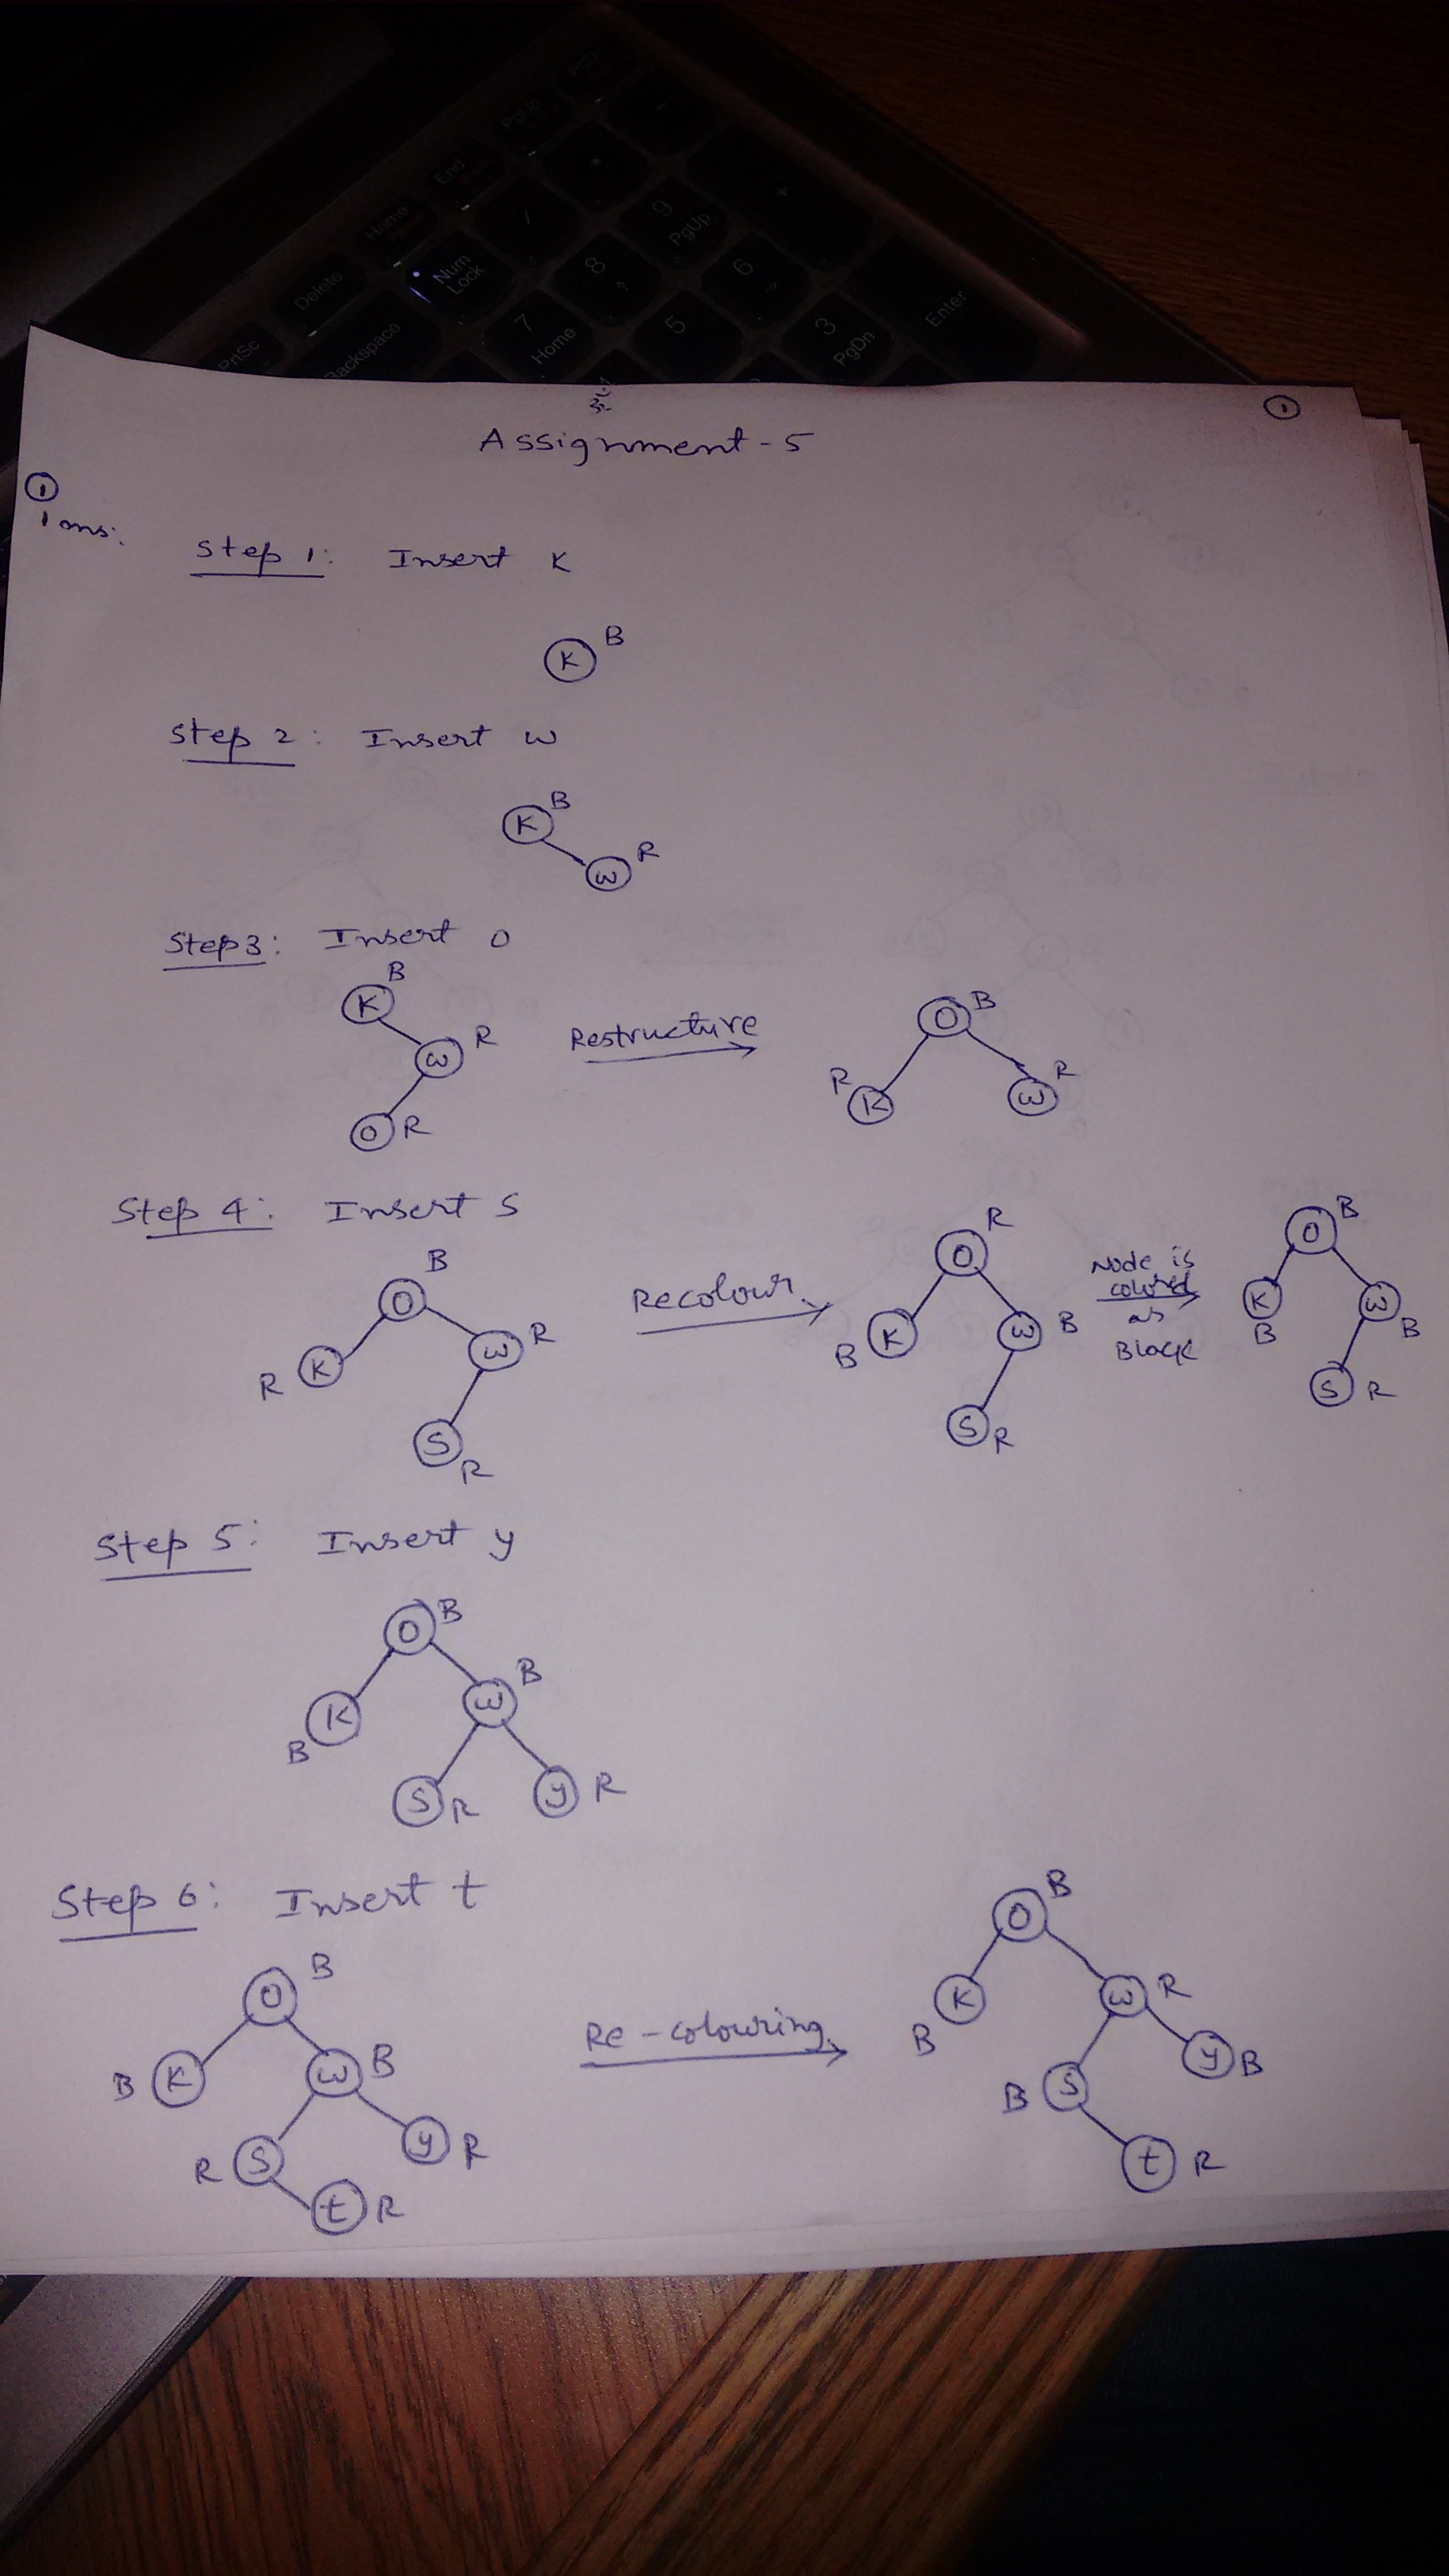 PgDn
PgUp
-
End
*
+
Home
/
9
PgUp
Delete
Num
Lock
8
6
Enter
PrtSc
Backspace
7
Home
5
3
PgDn
1
Assignment-5
1
1 ans:
Step 1: Insert K
K B
Step 2: Insert w
K B
w R
Step 3: Insert O
K B
w R
O R
Restructure
O B
R K
w R
Step 4: Insert S
B
O
R K
w R
S R
Recolour
R
O
B K
w B
S R
Node is
colored
as
Black
O B
K B
w B
S R
Step 5: Insert y
O B
K B
w B
S R
y R
Step 6: Insert t
O B
B K
w B
R S
y R
t R
Re-colouring
O B
K B
w R
B S
y B
t R